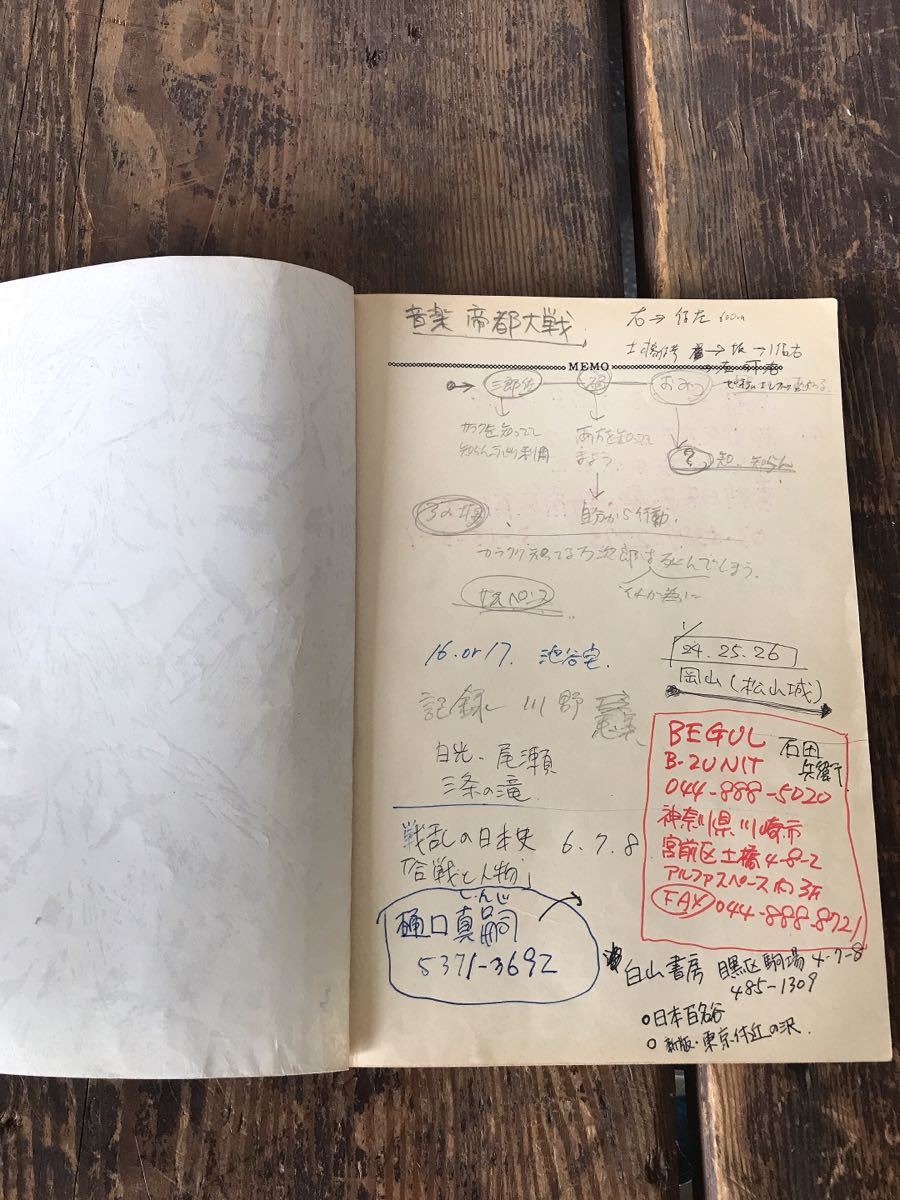 音楽 帝都大戦
右→ 左 600m
土橋信号 → 坂 → 1つ右
MEMO
三郎佐 おみつ
カラクリを知ってて
知らん 利用
両方を知って
まよう
? 知、知らん
自分から行動。
カラクリ知ってる万次郎は死んでしまう。
16.or17. 池谷宅
24.25.26
岡山(松山城)
記録 川野
日光、尾瀬
三条の滝
BEGUL 石田
兵衛
B-2UNIT
044-888-5020
神奈川県川崎市
宮前区土橋4-8-2
アルファスペース
FAX 044-888-8721
戦乱の日本史 6.7.8
「合戦と人物」
しんじ
樋口真嗣
5371-3692
白山書房 目黒区駒場4-7-8
485-1309
○日本百名谷
○新版・東京付近の沢